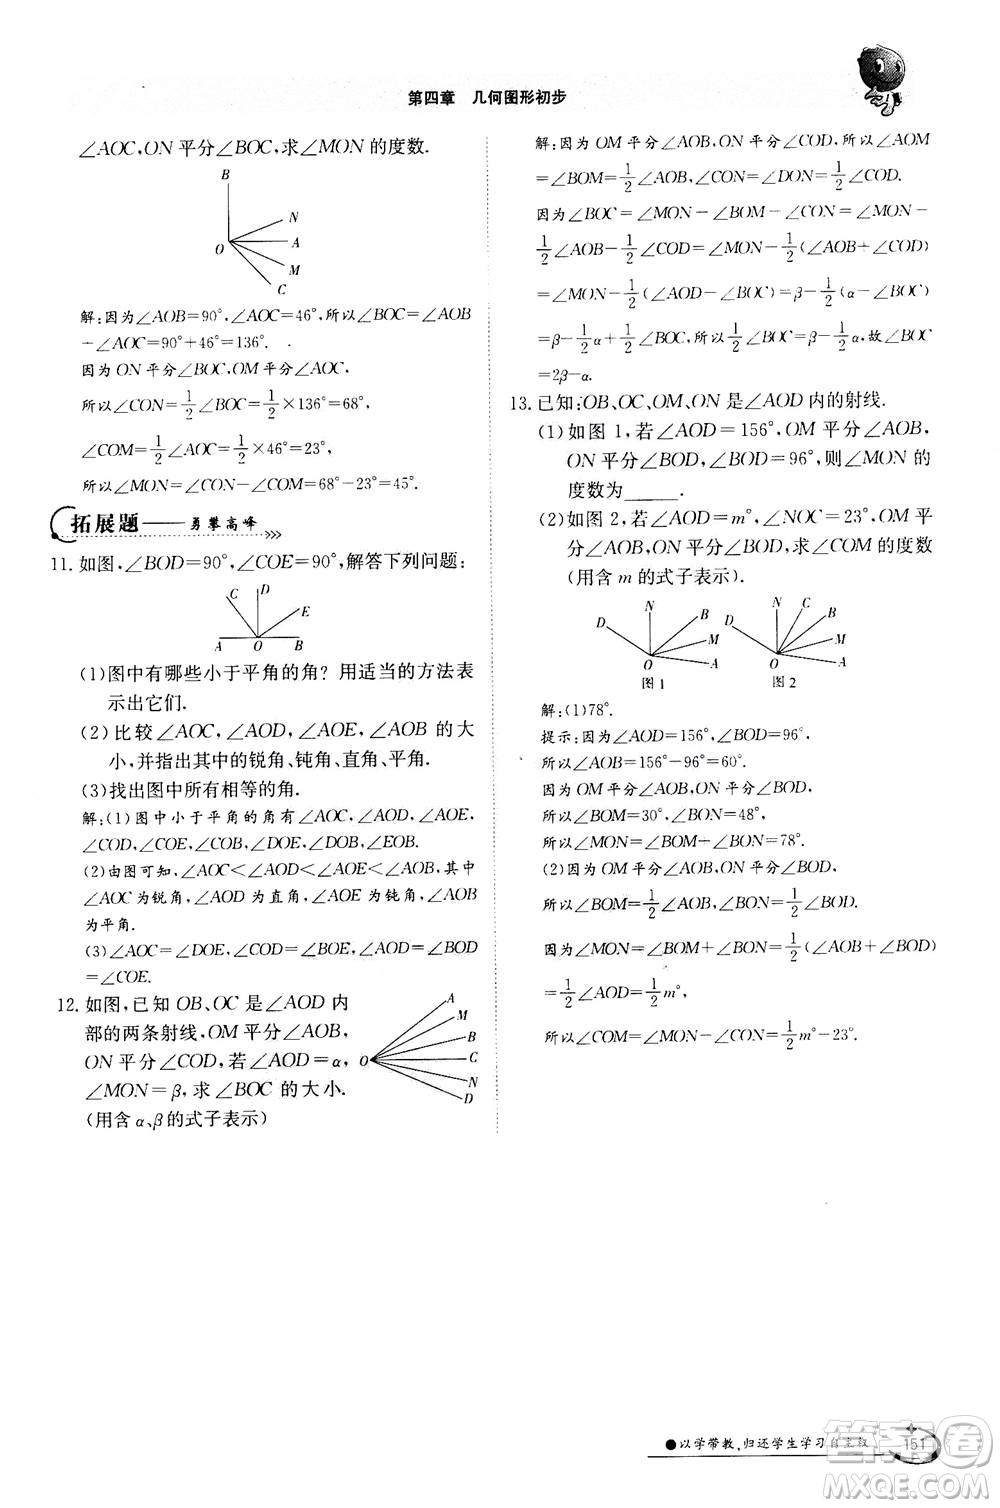 第四章 几何图形初步
∠AOC,ON平分∠BOC,求∠MON的度数.
B
N
O
A
M
C
解:因为∠AOB=90°,∠AOC=46°,所以∠BOC=∠AOB
+∠AOC=90°+46°=136°.
因为ON平分∠BOC,OM平分∠AOC,
所以∠CON=1/2∠BOC=1/2×136°=68°,
∠COM=1/2∠AOC=1/2×46°=23°,
所以∠MON=∠CON-∠COM=68°-23°=45°.
拓展题——勇攀高峰
11.如图,∠BOD=90°,∠COE=90°,解答下列问题:
C D E
A O B
(1)图中有哪些小于平角的角?用适当的方法表
示出它们.
(2)比较∠AOC、∠AOD、∠AOE、∠AOB的大
小,并指出其中的锐角、钝角、直角、平角.
(3)找出图中所有相等的角.
解:(1)图中小于平角的角有∠AOC,∠AOD,∠AOE,
∠COD,∠COE,∠COB,∠DOE,∠DOB,∠EOB.
(2)由图可知,∠AOC<∠AOD<∠AOE<∠AOB,其中
∠AOC为锐角,∠AOD为直角,∠AOE为钝角,∠AOB
为平角.
(3)∠AOC=∠DOE,∠COD=∠BOE,∠AOD=∠BOD
=∠COE.
12.如图,已知OB、OC是∠AOD内
部的两条射线,OM平分∠AOB,
ON平分∠COD,若∠AOD=α,
∠MON=β,求∠BOC的大小.
(用含α、β的式子表示)
A
M
B
O
C
N
D
解:因为OM平分∠AOB,ON平分∠COD,所以∠AOM
=∠BOM=1/2∠AOB,∠CON=∠DON=1/2∠COD.
因为∠BOC=∠MON-∠BOM-∠CON=∠MON-
1/2∠AOB-1/2∠COD=∠MON-1/2(∠AOB+∠COD)
=∠MON-1/2(∠AOD-∠BOC)=β-1/2(α-∠BOC)
=β-1/2α+1/2∠BOC,所以1/2∠BOC=β-1/2α,故∠BOC
=2β-α.
13.已知:OB、OC、OM、ON是∠AOD内的射线.
(1)如图1,若∠AOD=156°,OM平分∠AOB,
ON平分∠BOD,∠BOD=96°,则∠MON的
度数为______.
(2)如图2,若∠AOD=m°,∠NOC=23°,OM平
分∠AOB,ON平分∠BOD,求∠COM的度数
(用含m的式子表示).
D N B M O A
图1
D N C B M O A
图2
解:(1)78°.
提示:因为∠AOD=156°,∠BOD=96°,
所以∠AOB=156°-96°=60°.
因为OM平分∠AOB,ON平分∠BOD,
所以∠BOM=30°,∠BON=48°,
所以∠MON=∠BOM+∠BON=78°.
(2)因为OM平分∠AOB,ON平分∠BOD,
所以∠BOM=1/2∠AOB,∠BON=1/2∠BOD.
因为∠MON=∠BOM+∠BON=1/2(∠AOB+∠BOD)
=1/2∠AOD=1/2m°,
所以∠COM=∠MON-∠CON=1/2m°-23°.
●以学带教,归还学生学习自主权
151
答案卷
MXQE.COM